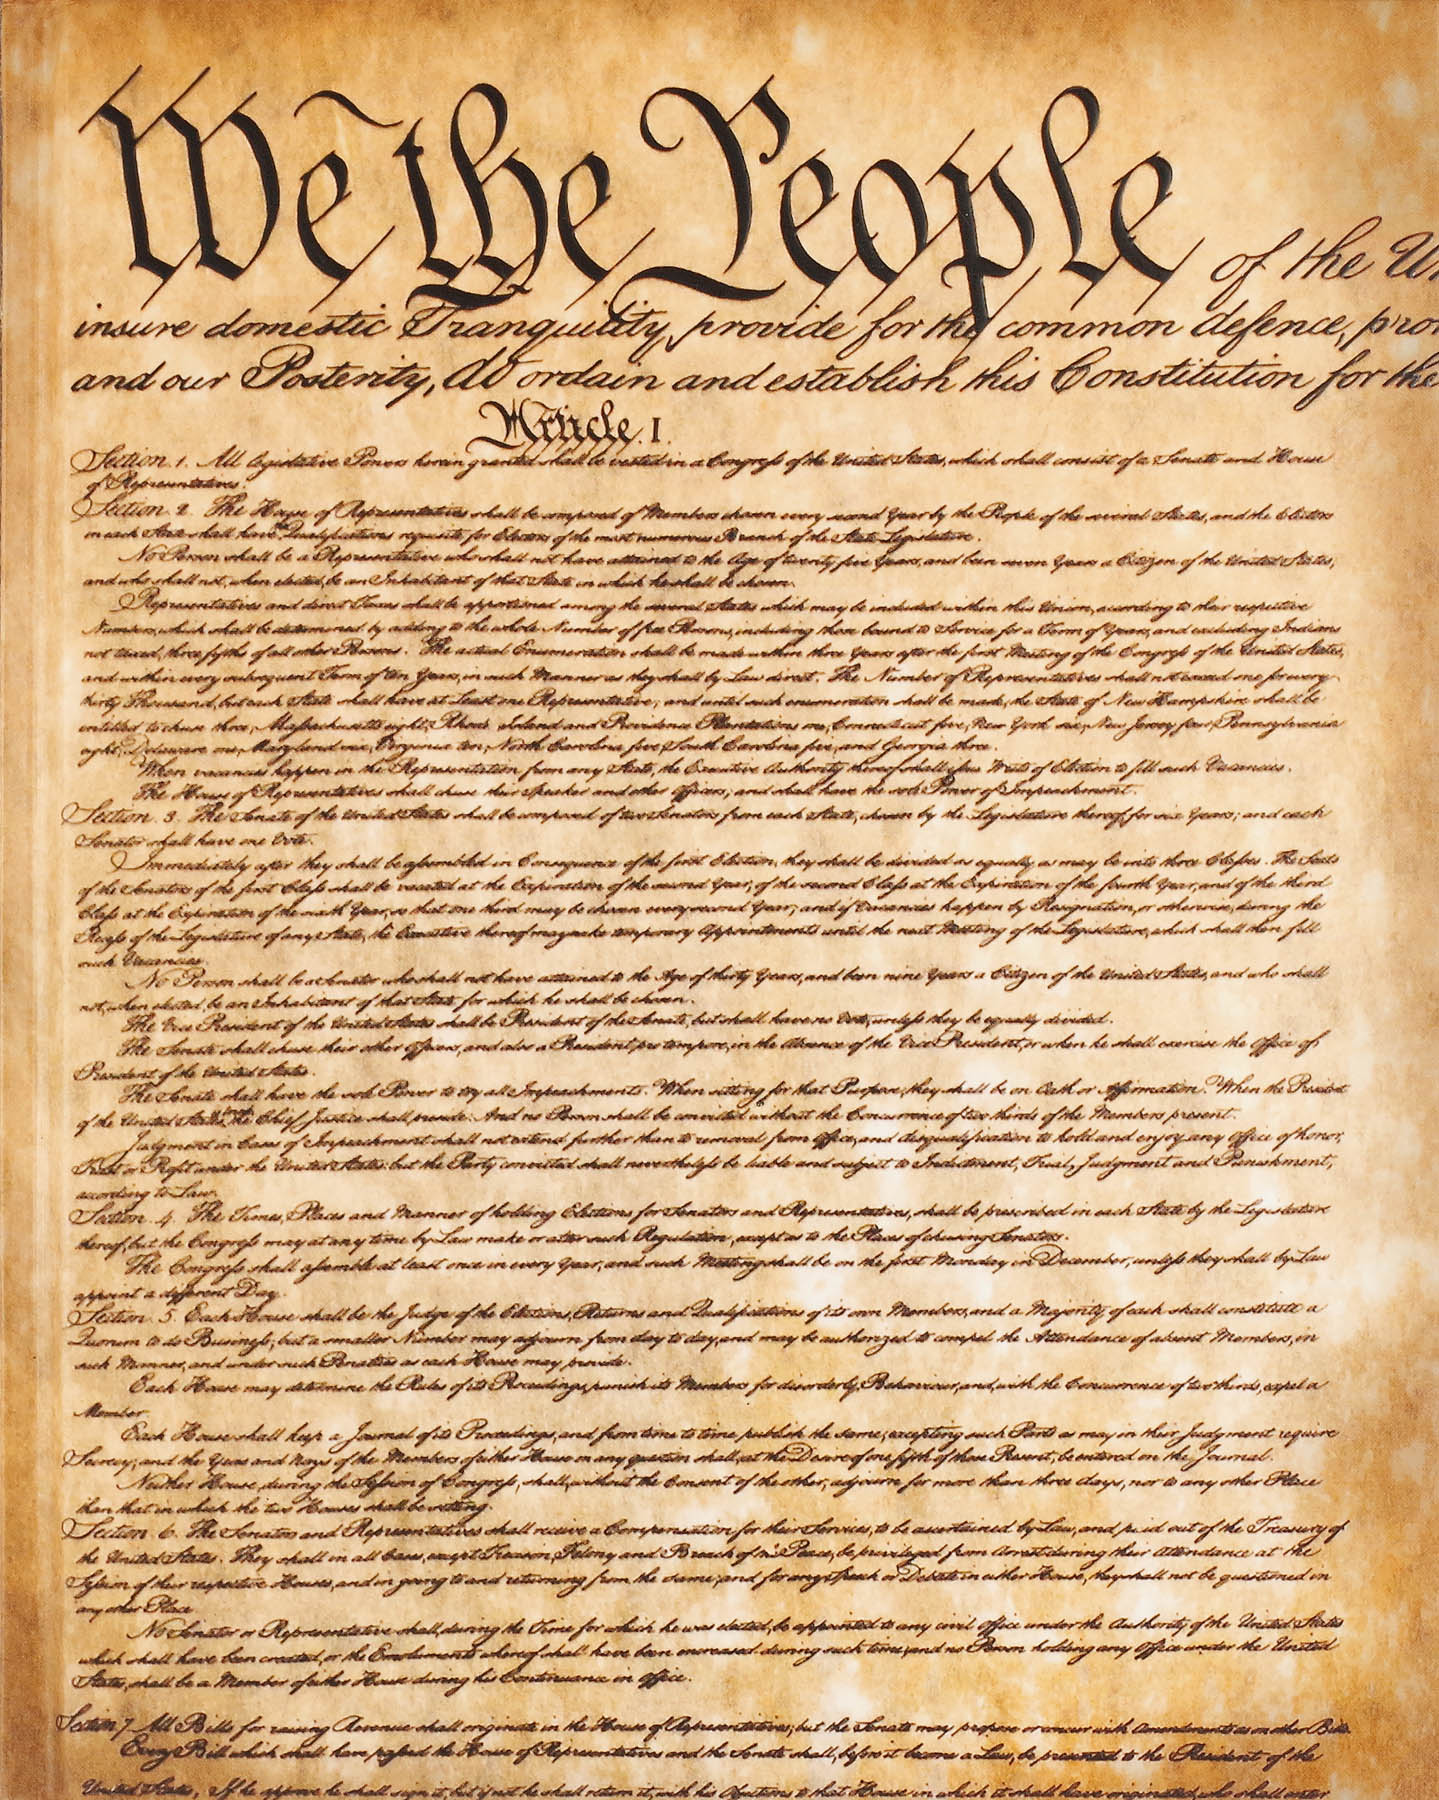 We the People of the Un
insure domestic Tranquility, provide for the common defence, pro
and our Posterity, do ordain and establish this Constitution for the
Article. I.
Section. 1. All legislative Powers herein granted shall be vested in a Congreſs of the United States, which shall consist of a Senate and House
of Representatives.
Section. 2. The House of Representatives shall be composed of Members chosen every second Year by the People of the several States, and the Electors
in each State shall have the Qualifications requisite for Electors of the most numerous Branch of the State Legislature.
No Person shall be a Representative who shall not have attained to the Age of twenty five Years, and been seven Years a Citizen of the United States,
and who shall not, when elected, be an Inhabitant of that State in which he shall be chosen.
Representatives and direct Taxes shall be apportioned among the several States which may be included within this Union, according to their respective
Numbers, which shall be determined by adding to the whole Number of free Persons, including those bound to Service for a Term of Years, and excluding Indians
not taxed, three fifths of all other Persons. The actual Enumeration shall be made within three Years after the first Meeting of the Congreſs of the United States,
and within every subsequent Term of ten Years, in such Manner as they shall by Law direct. The Number of Representatives shall not exceed one for every
thirty Thousand, but each State shall have at Least one Representative; and until such enumeration shall be made, the State of New Hampshire shall be
entitled to chuse three, Maſsachusetts eight, Rhode Island and Providence Plantations one, Connecticut five, New York six, New Jersey four, Pennsylvania
eight, Delaware one, Maryland six, Virginia ten, North Carolina five, South Carolina five, and Georgia three.
When vacancies happen in the Representation from any State, the Executive Authority thereof shall iſsue Writs of Election to fill such Vacancies.
The House of Representatives shall chuse their Speaker and other Officers; and shall have the sole Power of Impeachment.
Section. 3. The Senate of the United States shall be composed of two Senators from each State, chosen by the Legislature thereof, for six Years; and each
Senator shall have one Vote.
Immediately after they shall be aſsembled in Consequence of the first Election, they shall be divided as equally as may be into three Claſses. The Seats
of the Senators of the first Claſs shall be vacated at the Expiration of the second Year, of the second Claſs at the Expiration of the fourth Year, and of the third
Claſs at the Expiration of the sixth Year, so that one third may be chosen every second Year; and if Vacancies happen by Resignation, or otherwise, during the
Receſs of the Legislature of any State, the Executive thereof may make temporary Appointments until the next Meeting of the Legislature, which shall then fill
such Vacancies.
No Person shall be a Senator who shall not have attained to the Age of thirty Years, and been nine Years a Citizen of the United States, and who shall
not, when elected, be an Inhabitant of that State for which he shall be chosen.
The Vice President of the United States shall be President of the Senate, but shall have no Vote, unleſs they be equally divided.
The Senate shall chuse their other Officers, and also a President pro tempore, in the Absence of the Vice President, or when he shall exercise the Office of
President of the United States.
The Senate shall have the sole Power to try all Impeachments. When sitting for that Purpose, they shall be on Oath or Affirmation. When the President
of the United States is tried, the Chief Justice shall preside: And no Person shall be convicted without the Concurrence of two thirds of the Members present.
Judgment in Cases of Impeachment shall not extend further than to removal from Office, and disqualification to hold and enjoy any Office of honor,
Trust or Profit under the United States: but the Party convicted shall nevertheleſs be liable and subject to Indictment, Trial, Judgment and Punishment,
according to Law.
Section. 4. The Times, Places and Manner of holding Elections for Senators and Representatives, shall be prescribed in each State by the Legislature
thereof; but the Congreſs may at any time by Law make or alter such Regulation, except as to the Places of chusing Senators.
The Congreſs shall aſsemble at least once in every Year, and such Meeting shall be on the first Monday in December, unleſs they shall by Law
appoint a different Day.
Section. 5. Each House shall be the Judge of the Elections, Returns and Qualifications of its own Members, and a Majority of each shall constitute a
Quorum to do Busineſs; but a smaller Number may adjourn from day to day, and may be authorized to compel the Attendance of absent Members, in
such Manner, and under such Penalties as each House may provide.
Each House may determine the Rules of its Proceedings, punish its Members for disorderly Behaviour, and, with the Concurrence of two thirds, expel a
Member.
Each House shall keep a Journal of its Proceedings, and from time to time publish the same, excepting such Parts as may in their Judgment require
Secrecy; and the Yeas and Nays of the Members of either House on any question shall, at the Desire of one fifth of those Present, be entered on the Journal.
Neither House, during the Seſsion of Congreſs, shall, without the Consent of the other, adjourn for more than three days, nor to any other Place
than that in which the two Houses shall be sitting.
Section. 6. The Senators and Representatives shall receive a Compensation for their Services, to be ascertained by Law, and paid out of the Treasury of
the United States. They shall in all Cases, except Treason, Felony and Breach of the Peace, be privileged from Arrest during their Attendance at the
Seſsion of their respective Houses, and in going to and returning from the same; and for any Speech or Debate in either House, they shall not be questioned in
any other Place.
No Senator or Representative shall, during the Time for which he was elected, be appointed to any civil Office under the Authority of the United States
which shall have been created, or the Emoluments whereof shall have been encreased during such time; and no Person holding any Office under the United
States, shall be a Member of either House during his Continuance in Office.
Section 7. All Bills for raising Revenue shall originate in the House of Representatives; but the Senate may propose or concur with Amendments as on other Bills.
Every Bill which shall have paſsed the House of Representatives and the Senate shall, before it become a Law, be presented to the President of the
United States; If he approve he shall sign it, but if not he shall return it, with his Objections to that House in which it shall have originated, who shall enter